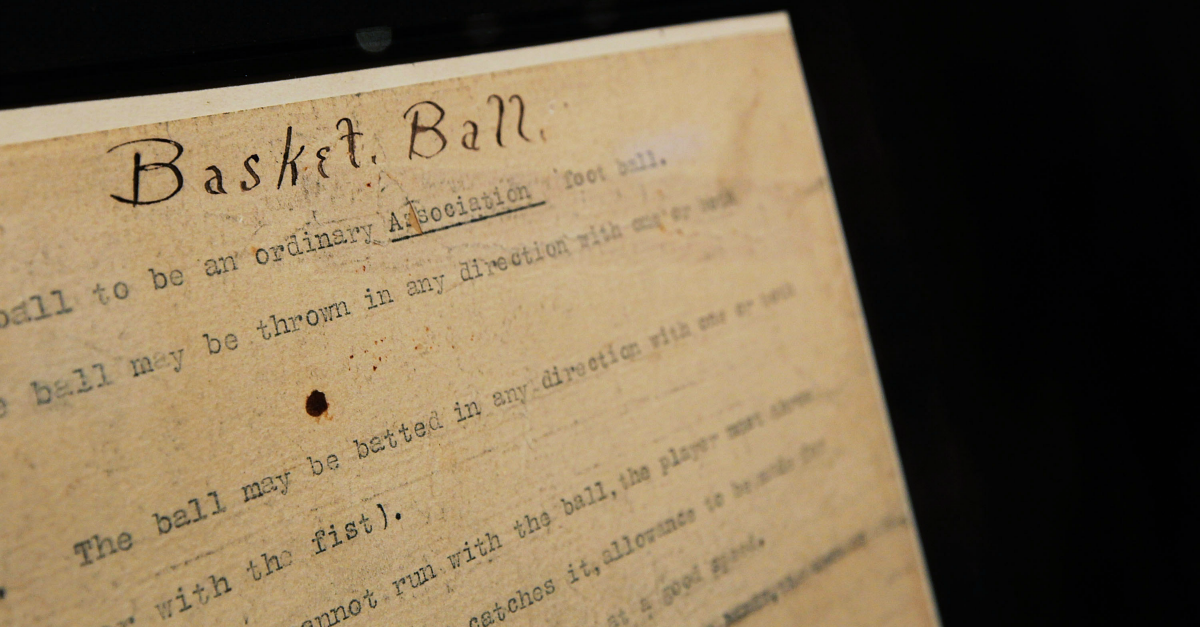 Basket. Ball.
ball to be an ordinary Association foot ball.
ball may be thrown in any direction with one or both
The ball may be batted in any direction with one or both
with the fist).
run with the ball, the player must
catches it, allowance to be made for
at a good speed.